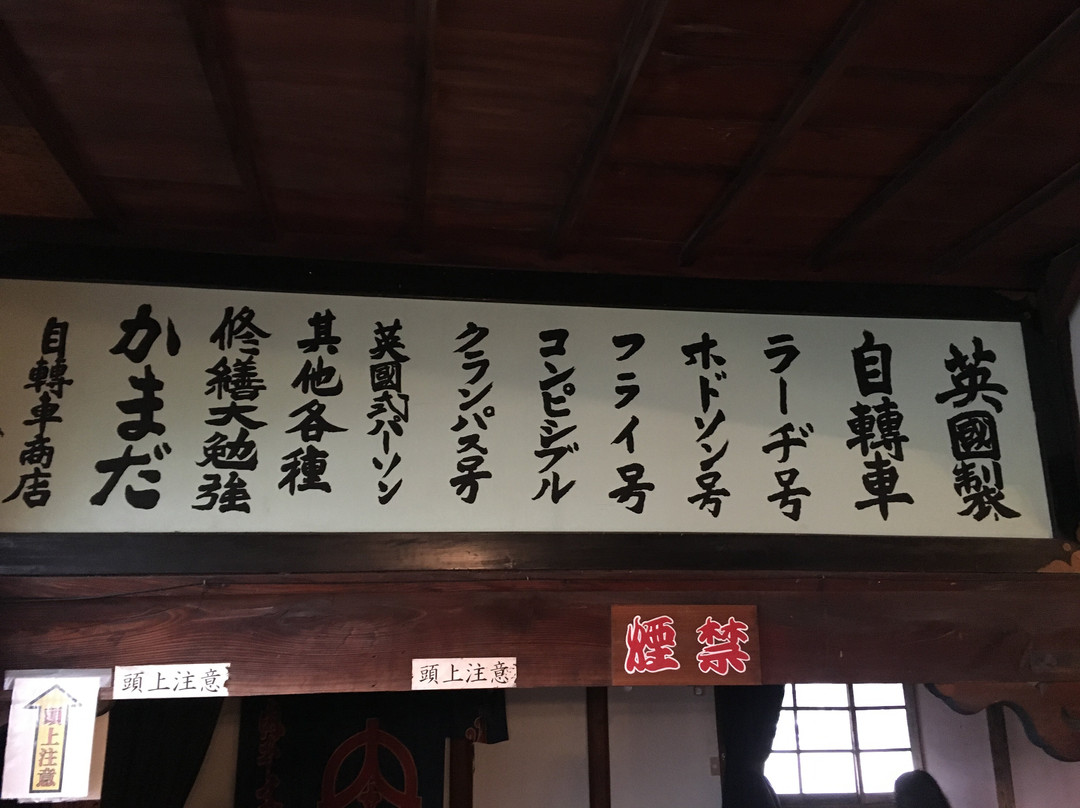 英國製
自轉車
ラーヂ号
ホドソン号
フライ号
コンピシブル
クランパス号
英國式パーソン
其他各種
修繕大勉強
かまだ
自轉車商店
禁煙
頭上注意
頭上注意
頭上注意